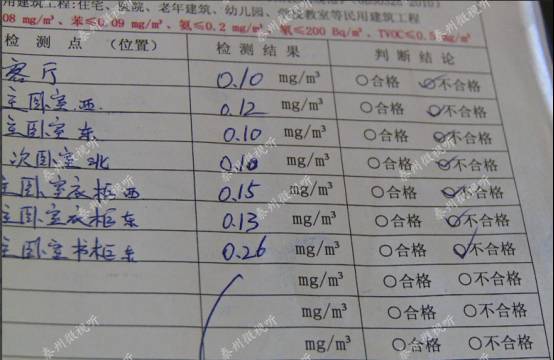 用建筑工程:住宅、医院、老年建筑、幼儿园、学校教室等民用建筑工程
08 mg/m³、苯≤0.09 mg/m³、氨≤0.2 mg/m³、氡≤200 Bq/m³、TVOC≤0.5 mg/m³
检 测 点 (位置) 检 测 结 果 判 断 结 论
客厅 0.10 mg/m³ 〇合格 〇不合格
主卧室西 0.12 mg/m³ 〇合格 〇不合格
主卧室东 0.10 mg/m³ 〇合格 〇不合格
次卧室北 0.10 mg/m³ 〇合格 〇不合格
主卧室衣柜西 0.15 mg/m³ 〇合格 〇不合格
主卧室衣柜东 0.13 mg/m³ 〇合格 〇不合格
主卧室书柜东 0.26 mg/m³ 〇合格 〇不合格
mg/m³ 〇合格 〇不合格
mg/m³ 〇合格 〇不合格
mg/m³ 〇合格 〇不合格
泰州微视听